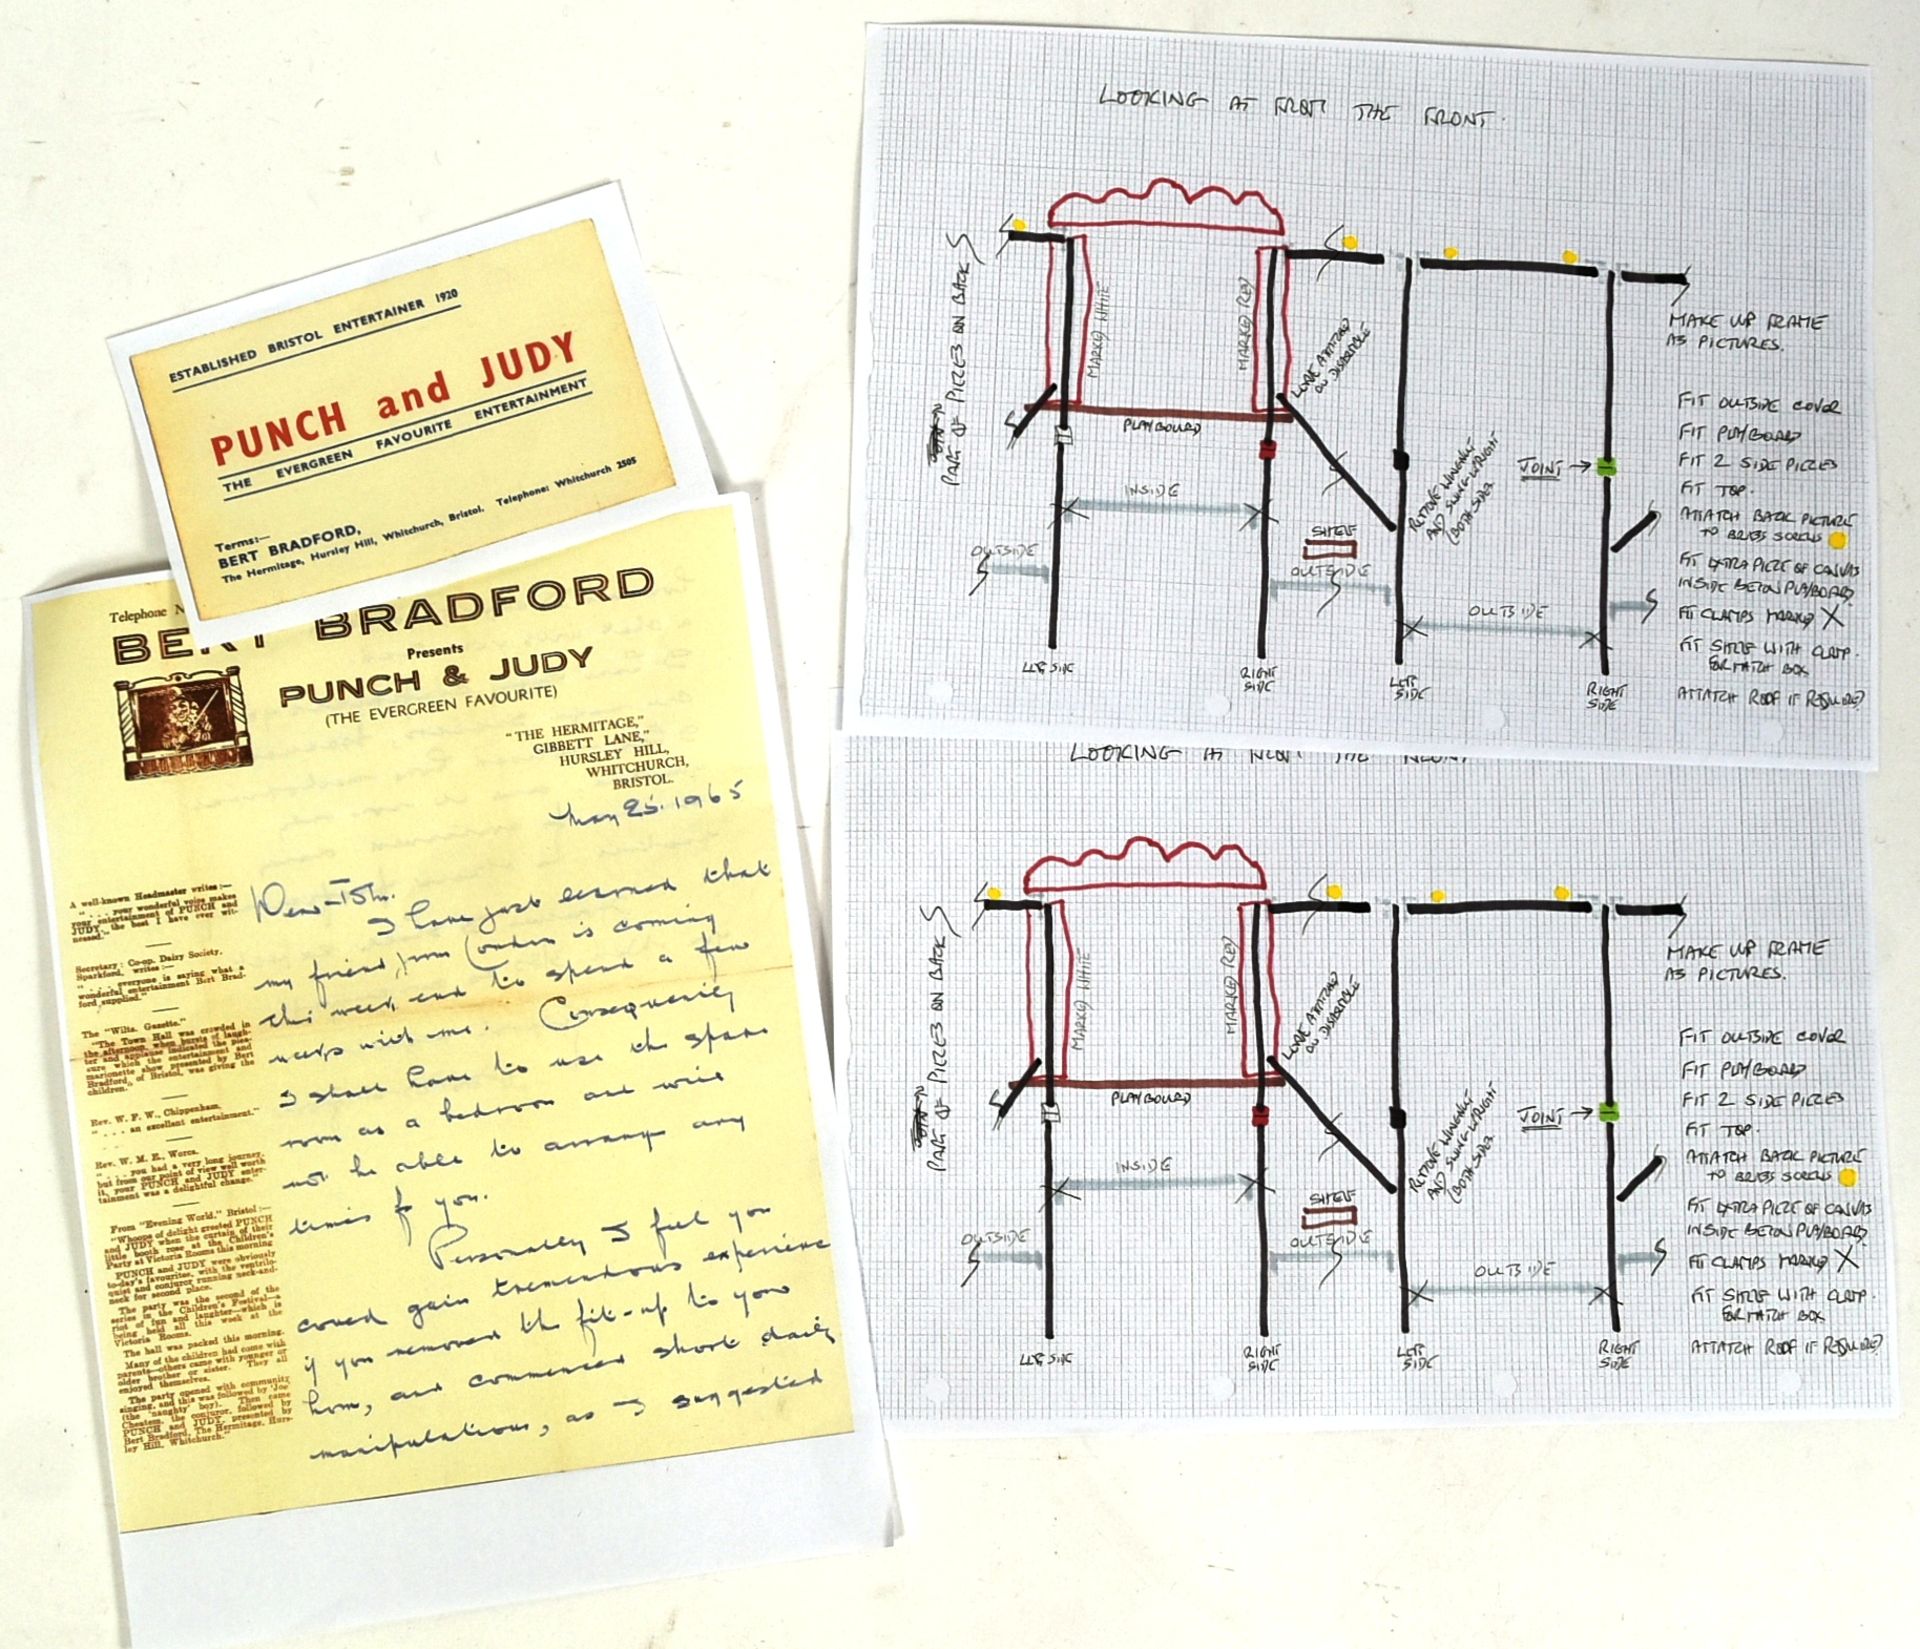 ESTABLISHED BRISTOL ENTERTAINER 1920
PUNCH and JUDY
THE EVERGREEN FAVOURITE ENTERTAINMENT
Terms:—
BERT BRADFORD,
The Hermitage, Hursley Hill, Whitchurch, Bristol. Telephone: Whitchurch 2505
Telephone N
BERT BRADFORD
Presents
PUNCH & JUDY
(THE EVERGREEN FAVOURITE)
"THE HERMITAGE,"
GIBBETT LANE,"
HURSLEY HILL,
WHITCHURCH,
BRISTOL.
May 25. 1965
Dear John.
I have just learned that
my friend from London is coming
this week end to spend a few
weeks with me. Consequently
I shall have to use the spare
room as a bedroom and will
not be able to arrange any
times for you.
Personally I feel you
could gain tremendous experience
if you removed the fit-up to your
home, and commenced short daily
manipulations, as I suggested
A well-known Headmaster writes:—
". . . . your wonderful voice makes
your entertainment of PUNCH and
JUDY, the best I have ever wit-
nessed."
Secretary: Co-op. Dairy Society,
Sparkford, writes:—
". . . . everyone is saying what a
wonderful entertainment Bert Brad-
ford supplied."
The "Wilts. Gazette."
"The Town Hall was crowded in
the afternoon, when bursts of laugh-
ter and applause indicated the plea-
sure which the entertainment and
marionette show presented by Bert
Bradford, of Bristol, was giving the
children."
Rev. W. F. W., Chippenham.
". . . an excellent entertainment."
Rev. W. M. E., Worcs.
". . . you had a very long journey,
but from our point of view well worth
it, your PUNCH and JUDY enter-
tainment was a delightful change."
From "Evening World," Bristol:—
"Whoops of delight greeted PUNCH
and JUDY when the curtain of their
little booth rose at the Children's
Party at Victoria Rooms this morning
PUNCH and JUDY were obviously
to-day's favourites, with the ventrilo-
quist and conjuror running neck-and-
neck for second place.
The party was the second of the
series in the Children's Festival—a
riot of fun and laughter—which is
being held all this week at the
Victoria Rooms.
The hall was packed this morning.
Many of the children had come with
parents—others came with younger or
older brother or sister. They all
enjoyed themselves.
The party opened with community
singing, and this was followed by 'Joe'
(the 'naughty' boy). Then came
Cheatem, the conjuror, followed by
PUNCH and JUDY, presented by
Bert Bradford, The Hermitage, Hurs-
ley Hill, Whitchurch."
LOOKING AT FROM THE FRONT.
PART OF PIECES ON BACK
MARKED WHITE
MARKED RED
PLAYBOARD
LEAVE ATTATCHED
ON DISSEMBLE
REMOVE WINGNUT
AND SWING UPRIGHT
(BOTH SIDES)
JOINT →
INSIDE
OUTSIDE
SHELF
OUTSIDE
OUTSIDE
LEFT SIDE
RIGHT
SIDE
LEFT
SIDE
RIGHT
SIDE
MAKE UP FRAME
AS PICTURES.
FIT OUTSIDE COVER
FIT PLAYBOARD
FIT 2 SIDE PIECES
FIT TOP.
ATTATCH BACK PICTURE
TO BRASS SCREWS
FIT EXTRA PIECE OF CANVAS
INSIDE BELOW PLAYBOARD.
FIT CLAMPS MARKED X
FIT SHELF WITH CLAMP.
FOR MATCH BOX
ATTATCH ROOF IF REQUIRED.
LOOKING AT FROM THE FRONT
PART OF PIECES ON BACK
MARKED WHITE
MARKED RED
PLAYBOARD
LEAVE ATTATCHED
ON DISSEMBLE
REMOVE WINGNUT
AND SWING UPRIGHT
(BOTH SIDES)
JOINT →
INSIDE
OUTSIDE
SHELF
OUTSIDE
OUTSIDE
LEFT SIDE
RIGHT
SIDE
LEFT
SIDE
RIGHT
SIDE
MAKE UP FRAME
AS PICTURES.
FIT OUTSIDE COVER
FIT PLAYBOARD
FIT 2 SIDE PIECES
FIT TOP.
ATTATCH BACK PICTURE
TO BRASS SCREWS
FIT EXTRA PIECE OF CANVAS
INSIDE BELOW PLAYBOARD.
FIT CLAMPS MARKED X
FIT SHELF WITH CLAMP.
FOR MATCH BOX
ATTATCH ROOF IF REQUIRED.